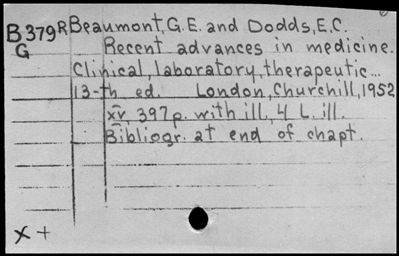 B379R Beaumont, G.E. and Dodds, E.C.
G Recent advances in medicine.
Clinical, laboratory, therapeutic...
13-th ed. London, Churchill, 1952
xv, 397p. with ill., 4 L. ill.
Bibliogr. at end of chapt.
x +